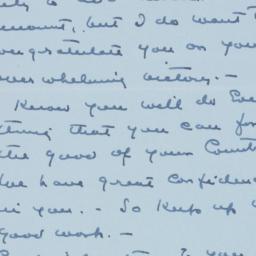 amount, but I do want t
congratulate you on you
over whelming victory. -
Know you will do Eve
thing that you can for
the good of your Count
We have great confidenc
in you. - So keep up
good work. -